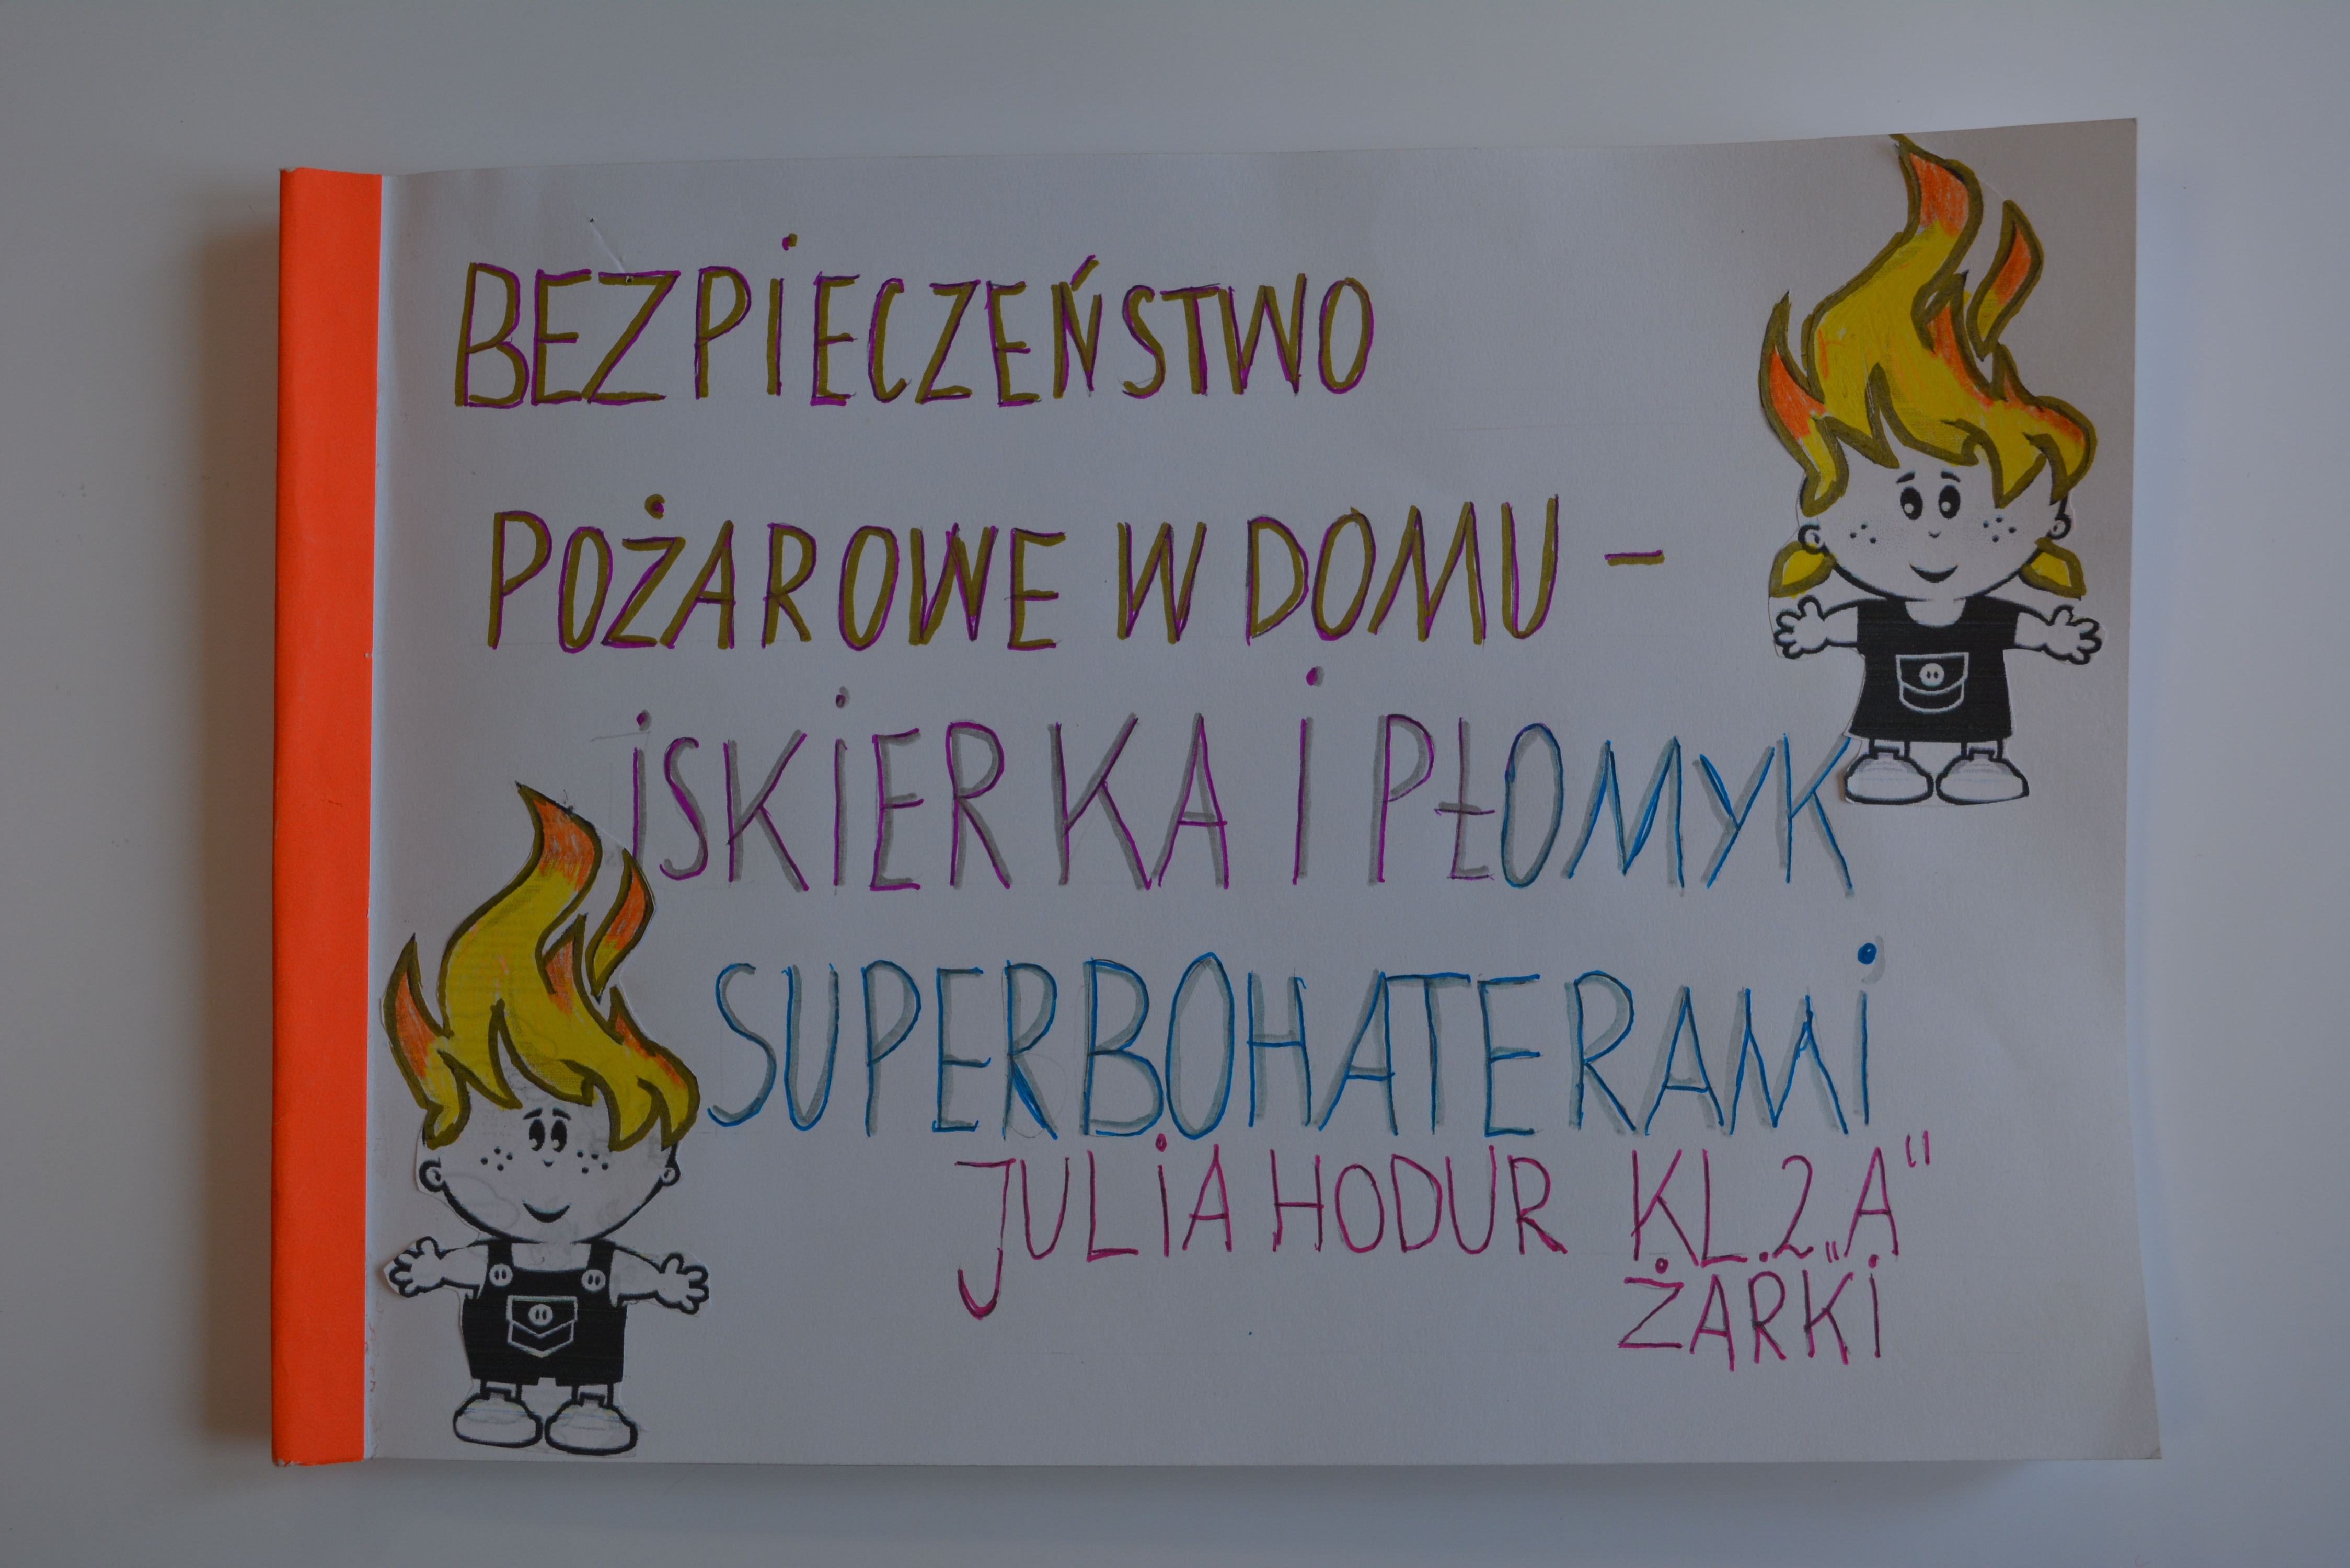 BEZPIECZEŃSTWO
POŻAROWE W DOMU -
iSKiERKA i PŁOMYK
SUPERBOHATERAMi
JULiA HODUR KL.2„A"
ŻARKi